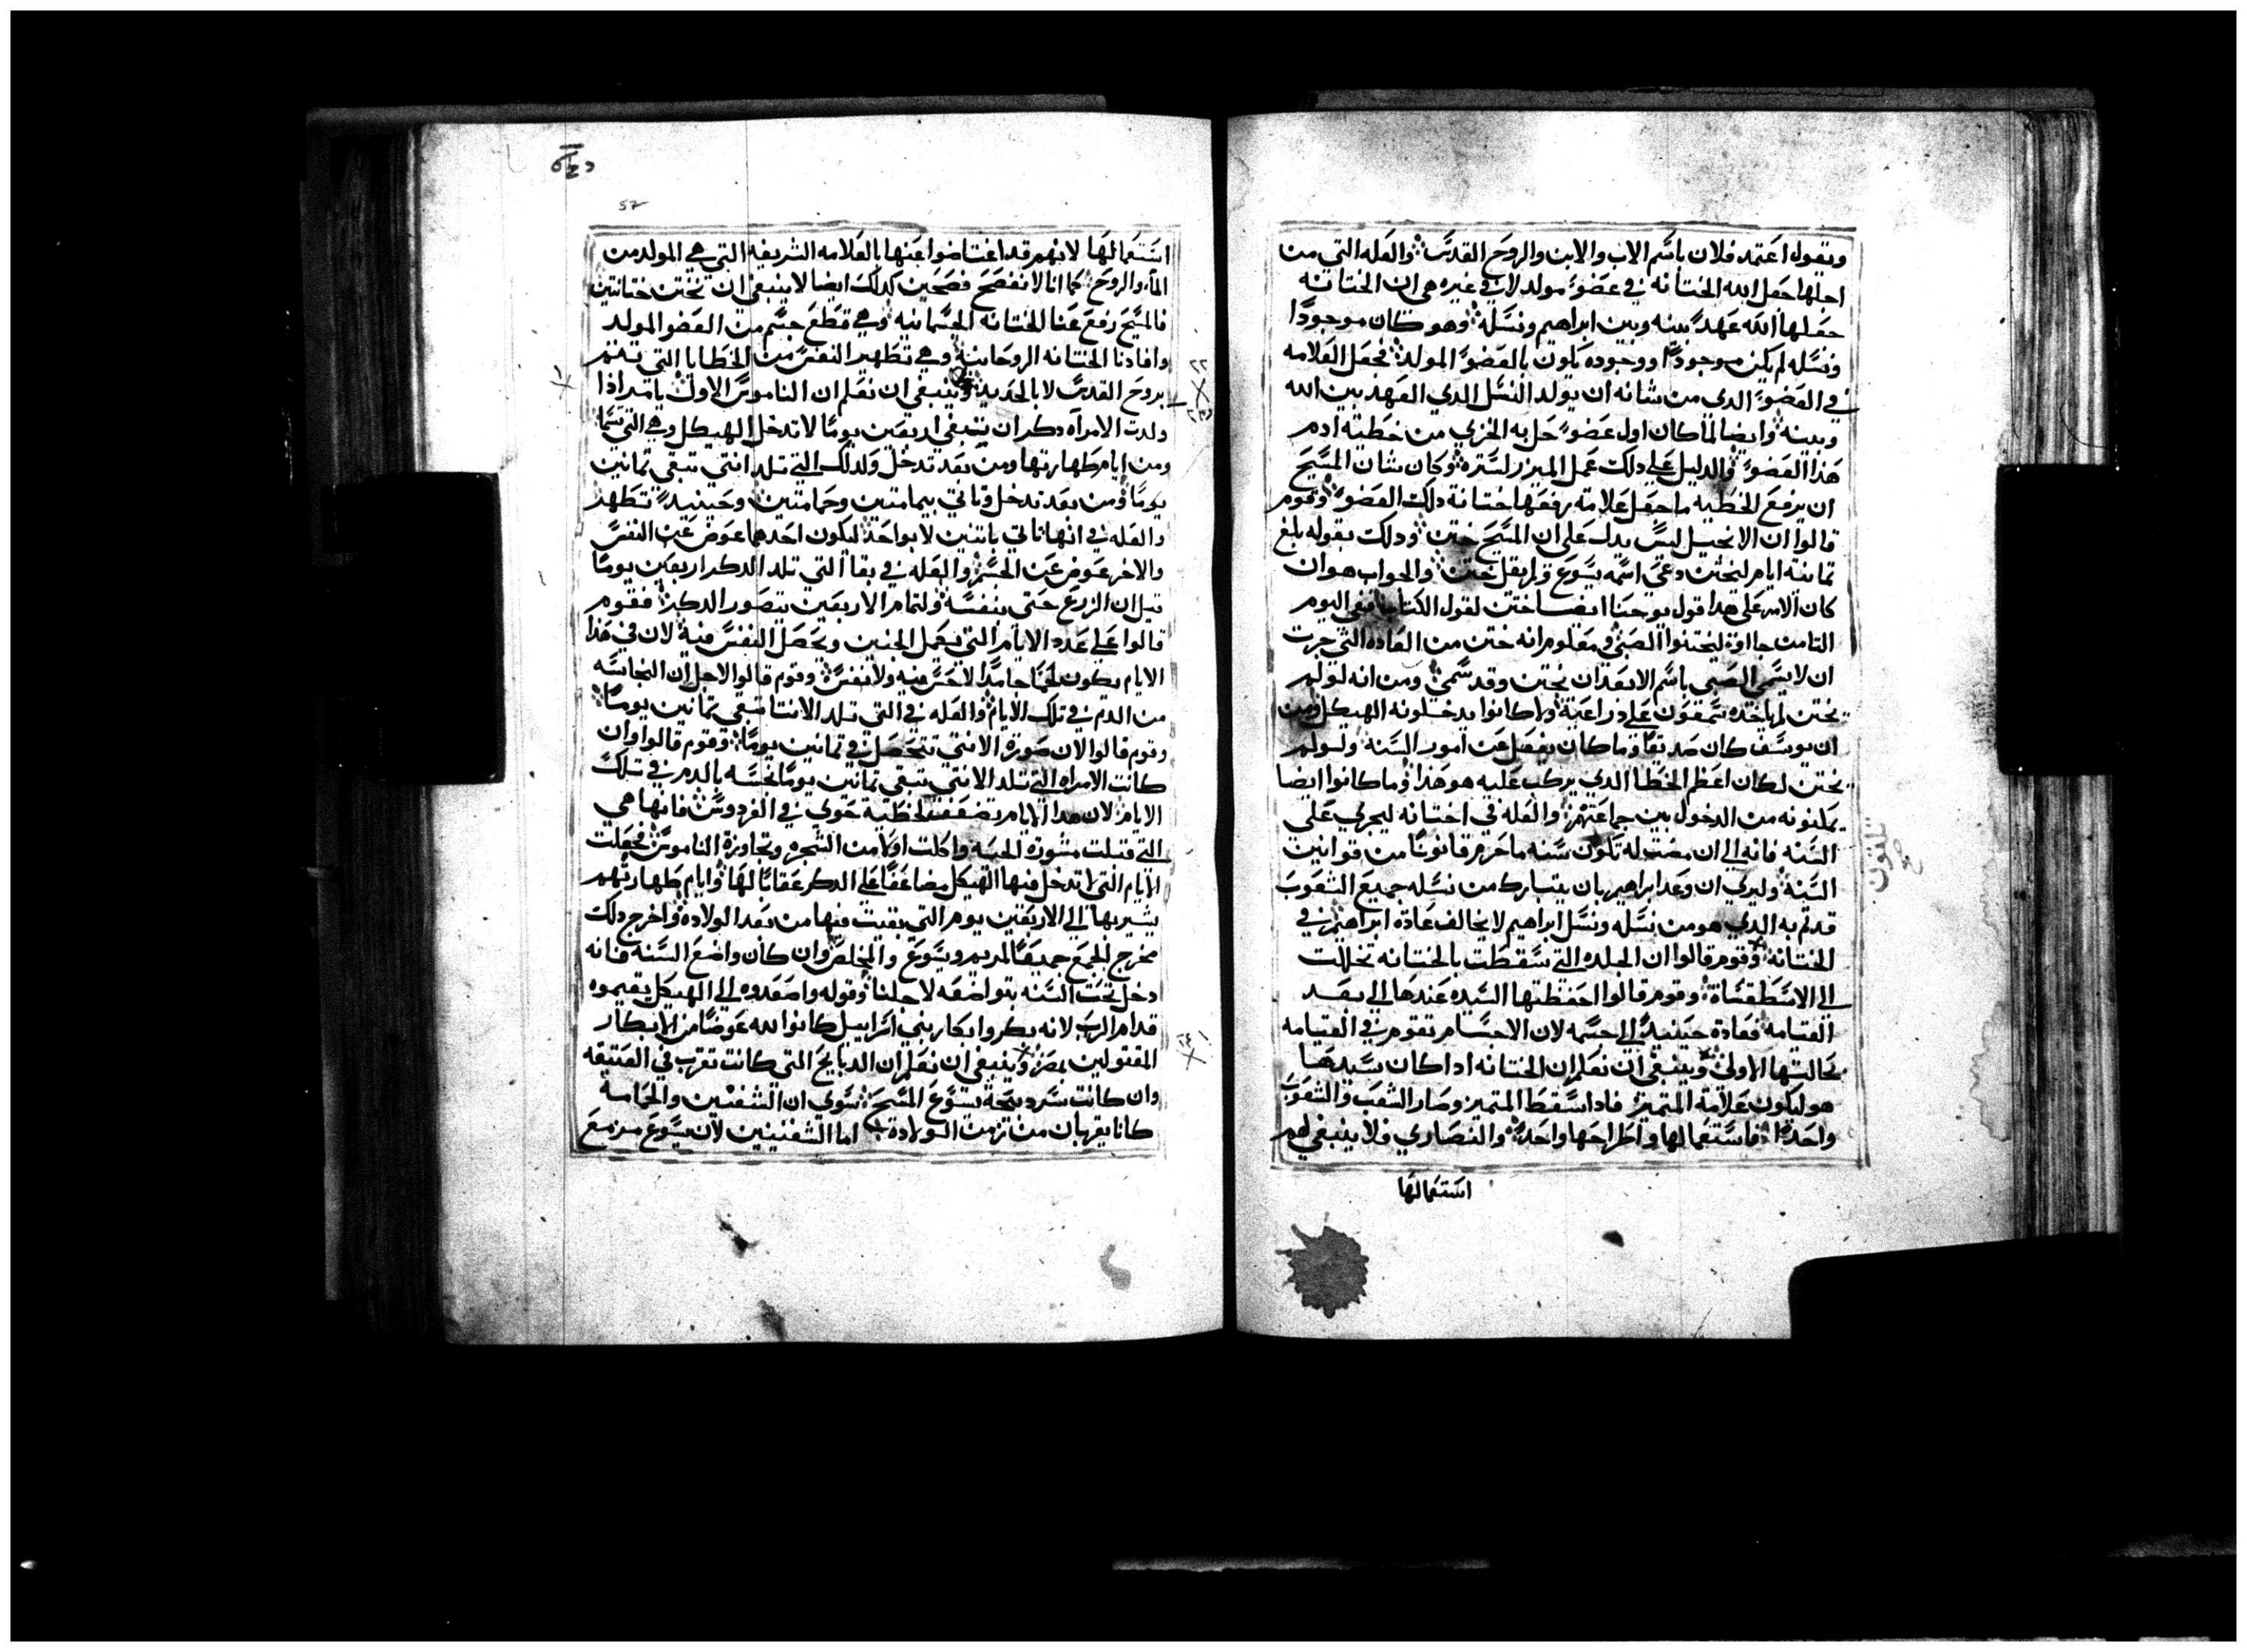 ونقول اعتمد فلان باسم الاب والابن والروح القدس والعله التي من
اجلها جعل الله الختانه في عضو مولد لا في غيره هي ان الختانه
جعلها الله عهد بينه وبين ابراهيم ونسله وهو كان موجودًا
ونسله لم يكن موجودًا ووجوده يكون بالعضو المولد فجعل العلامه
في العضو الدي من شانه ان يولد النسل الدي العهد بين الله
وبينه وايضا لما كان اول عضو حل به الخزي من خطية ادم
هدا العضو والدليل علي دلك عمل الميزر لستره وكان شان المسيح
ان يرفع الخطيه ما جعل علامة رفعها ختانة دلك العضو وقوم
قالوا ان الانجيل ليس يدل على ان المسيح ختن ودلك بقوله بلغ
تمانية ايام ليختن دعي اسمه يسوع ولم يقل ختن والجواب هو ان
كان الامر على هدا قول يوحنا ايضا ختن لقول الكتاب في اليوم
التامن جااوا ليختنوا الصبي في معلوم انه ختن من العاده التي جرت
ان لا يسمي الصبي باسم الا بعد ان يختن وقد سمي ومن انه لو لم
يختن لم ياخده سمعون علي دراعيه ولا كانوا يدخلونه الهيكل ومن
ان يوسف كان صديقًا وما كان يفعل عن امور السنه ولو لم
يختن لكان اعظم الخطا الدي يركب عليه هو هدا وما كانوا ايضا
يمكنونه من الدخول بين جماعتهم والعله في اختتانه ليجري على
السنه فانه الي ان مضت له تكون سنه ما خرم قانونًا من قوانين
السنة وليري ان وعد ابراهيم بان يتبارك من نسله جميع الشعوب
قد تم به الدي هو من نسله ونسل ابراهيم لا يخالف عادة ابراهيم في
الختانه وقوم قالوا ان الجلده التي سقطت بالختانه تحللت
الي الاسطقسات وقوم قالوا احفظتها السيده عندها الي بعد
القيامه فعادة حينيد الي جسمه لان الاجسام تقوم في القيامه
بحالتها الاولى وينبغي ان نعلم ان الختانه ادا كان سببها
هو ليكون علامة المتميز فادا سقط المتميز وصار الشعب والشعوب
واحدًا فاستعمالها واطراحها واحد والنصاري فلا ينبغي لهم
استعمالها
57
استعمالها لانهم قد اعتاضوا عنها بالعلامه الشريفه التي هي المولد من
الماء والروح كما انا لا نفصح فصحين كدلك ايضا لا ينبغي ان نختتن ختانتين
فالمسيح رفع عنا الختانه الجسمانيه وهي قطع جسم من العضو المولد
وافادنا الختانه الروحانيه وهي تطهير النفس من الخطايا التي تتم
بروح القدس لا بالحديد وينبغي ان نعلم ان الناموس الاول يامر ادا
ولدت الامرآه دكر ان تبقي اربعين يومًا لا تدخل الهيكل وهي التي تسما
ومن ايام طهارتها ومن بعد تدخل ولدلك التي تلد انتي تبقي تمانين
يومًا ومن بعد تدخل وتاتي بيمامتين وحمامتين وحينيد تطهر
والعله في انها تاتي باتنين لا بواحد ليكون احدهما عوض عن النفس
والاخر عوض عن الجسم والعله في بقا التي تلد الدكر اربعين يومًا
قيل ان الزرع حتى يتنفسه ولتمام الاربعين يتصور الدكر فقوم
قالوا علي عدد الايام التي يكمل الجنين وتحصل النفس فيه لان في هدا
الايام يكون لحمًا جامدًا لا حس فيه ولا نفس وقوم قالوا لاجل ان النجاسه
من الدم في تلك الايام والعله في التي تلد الانتا تبقي تمانين يومًا
وقوم قالوا لان صورة الانتي تتحصل في تمانين يومًا وقوم قالوا وان
كانت الامراه التي تلد الانتي تبقي تمانين يومًا نجسه بالدم في تلك
الايام لان هدا الايام تضعفت لخطية حوي في الفردوس فانها هي
التي قبلت مشورة الحيه واكلت اولًا من الشجره وتجاوزة الناموس فجعلت
الايام التي لا تدخل فيها الهيكل مضاعفًا علي الدكر عقابًا لها وايام طهارتهم
يشير بها الي الاربعين يوم التي بقيت فيها من بعد الولادة واخرج دلك
مخرج الجمع جميعًا لمريم ويسوع والمخلص وان كان واضع السنه فانه
دخل تحت السنه بتواضعه لاجلنا وقوله واصعدوه الي الهيكل يقيموه
قدام الرب لانه بكر وابكار بني اسراييل كانوا لله عوضًا من الابكار
المقتولين بمصر وينبغي ان نعلم ان الدبايح التي كانت تقرب في العتيقه
وان كانت سرد بيحة يسوع المسيح سوي ان الشفنين والحمامه
كانا يقربان من تزمن الولادة اما الشفنينين لان يسوع مزمع